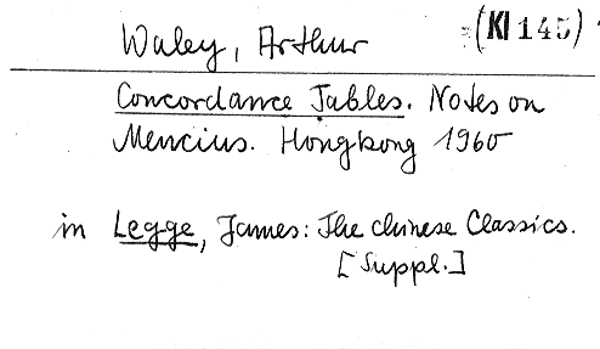 Waley, Arthur (KI 145)
Concordance Tables. Notes on
Mencius. Hongkong 1960
in Legge, James: The chinese Classics.
[Suppl.]